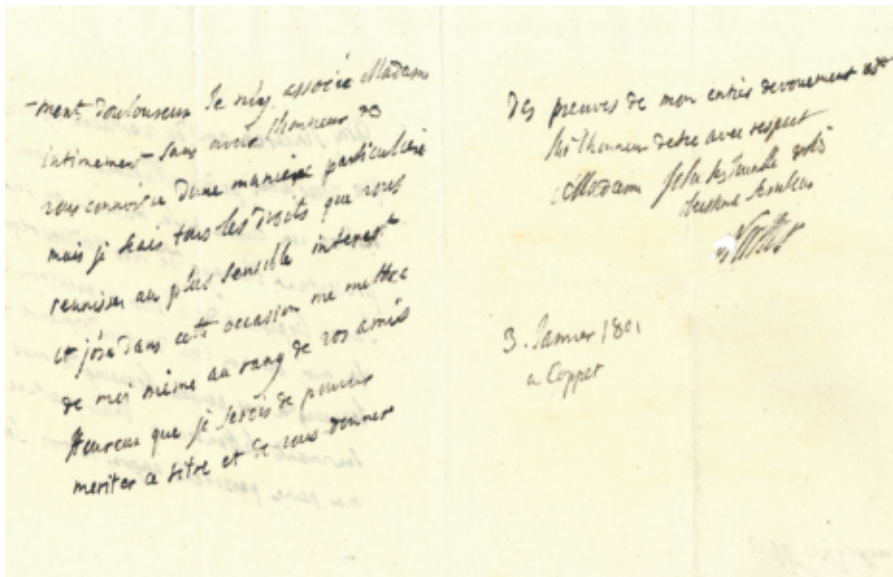 -ment douloureux Je m'y associe Madame
intimement sans avoir l'honneur de
vous connoitre dune maniere particuliere
mais je scais tous les droits que vous
reunissez au plus sensible interest
et j'ose dans cette occasion me mettre
de moi même au rang de vos amis
Heureux que je serois de pouvoir
meriter ce titre et de vous donner
Des preuves de mon entier devouement
l'honneur detre avec respect
Madame
3. Janvier 1801
a Coppet